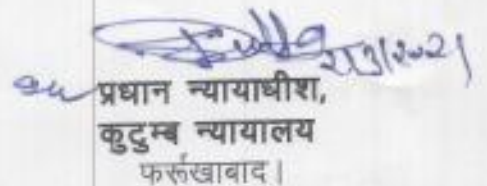 2/3/2021
प्रधान न्यायाधीश,
कुटुम्ब न्यायालय
फर्रूखाबाद।